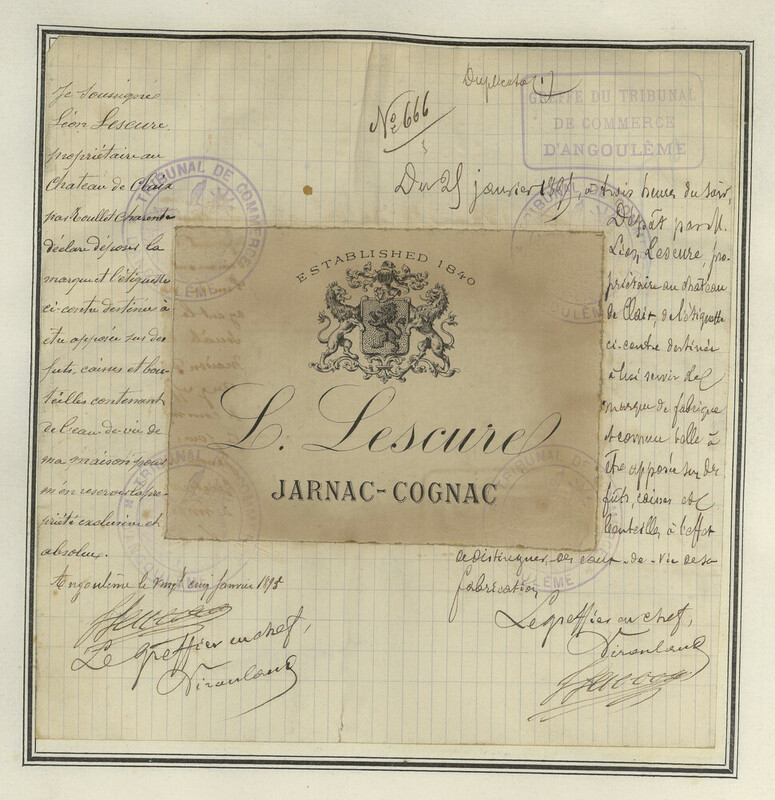 Je soussigné
Léon Lescure
propriétaire au
Chateau de Clair
par Roullet Charente
déclare déposer la
marque et l'étiquette
ci-contre destinée à
être apposée sur des
futs, caisses et bou-
teilles contenant
de l'eau-de-vie de
ma maison pour
m'en reserver la pro-
priété exclusive et
absolue.
Angoulème le vingt cinq Janvier 1895
Le greffier en chef,
Duplicata (1)
No 666
GREFFE DU TRIBUNAL
DE COMMERCE
D'ANGOULÊME
Du 25 janvier 1895, à trois heures du soir,
Dépôt par M.
Léon Lescure, pro-
priétaire au château
de Clair, de l'étiquette
ci-contre destinée
à lui servir de
marque de fabrique
et comme telle à
être apposée sur des
fûts, caisses et
bouteilles à l'effet
de distinguer des eaux-de-vie de sa
fabrication
Le greffier en chef,
ESTABLISHED 1840
L. Lescure
JARNAC-COGNAC
TRIBUNAL DE COMMERCE